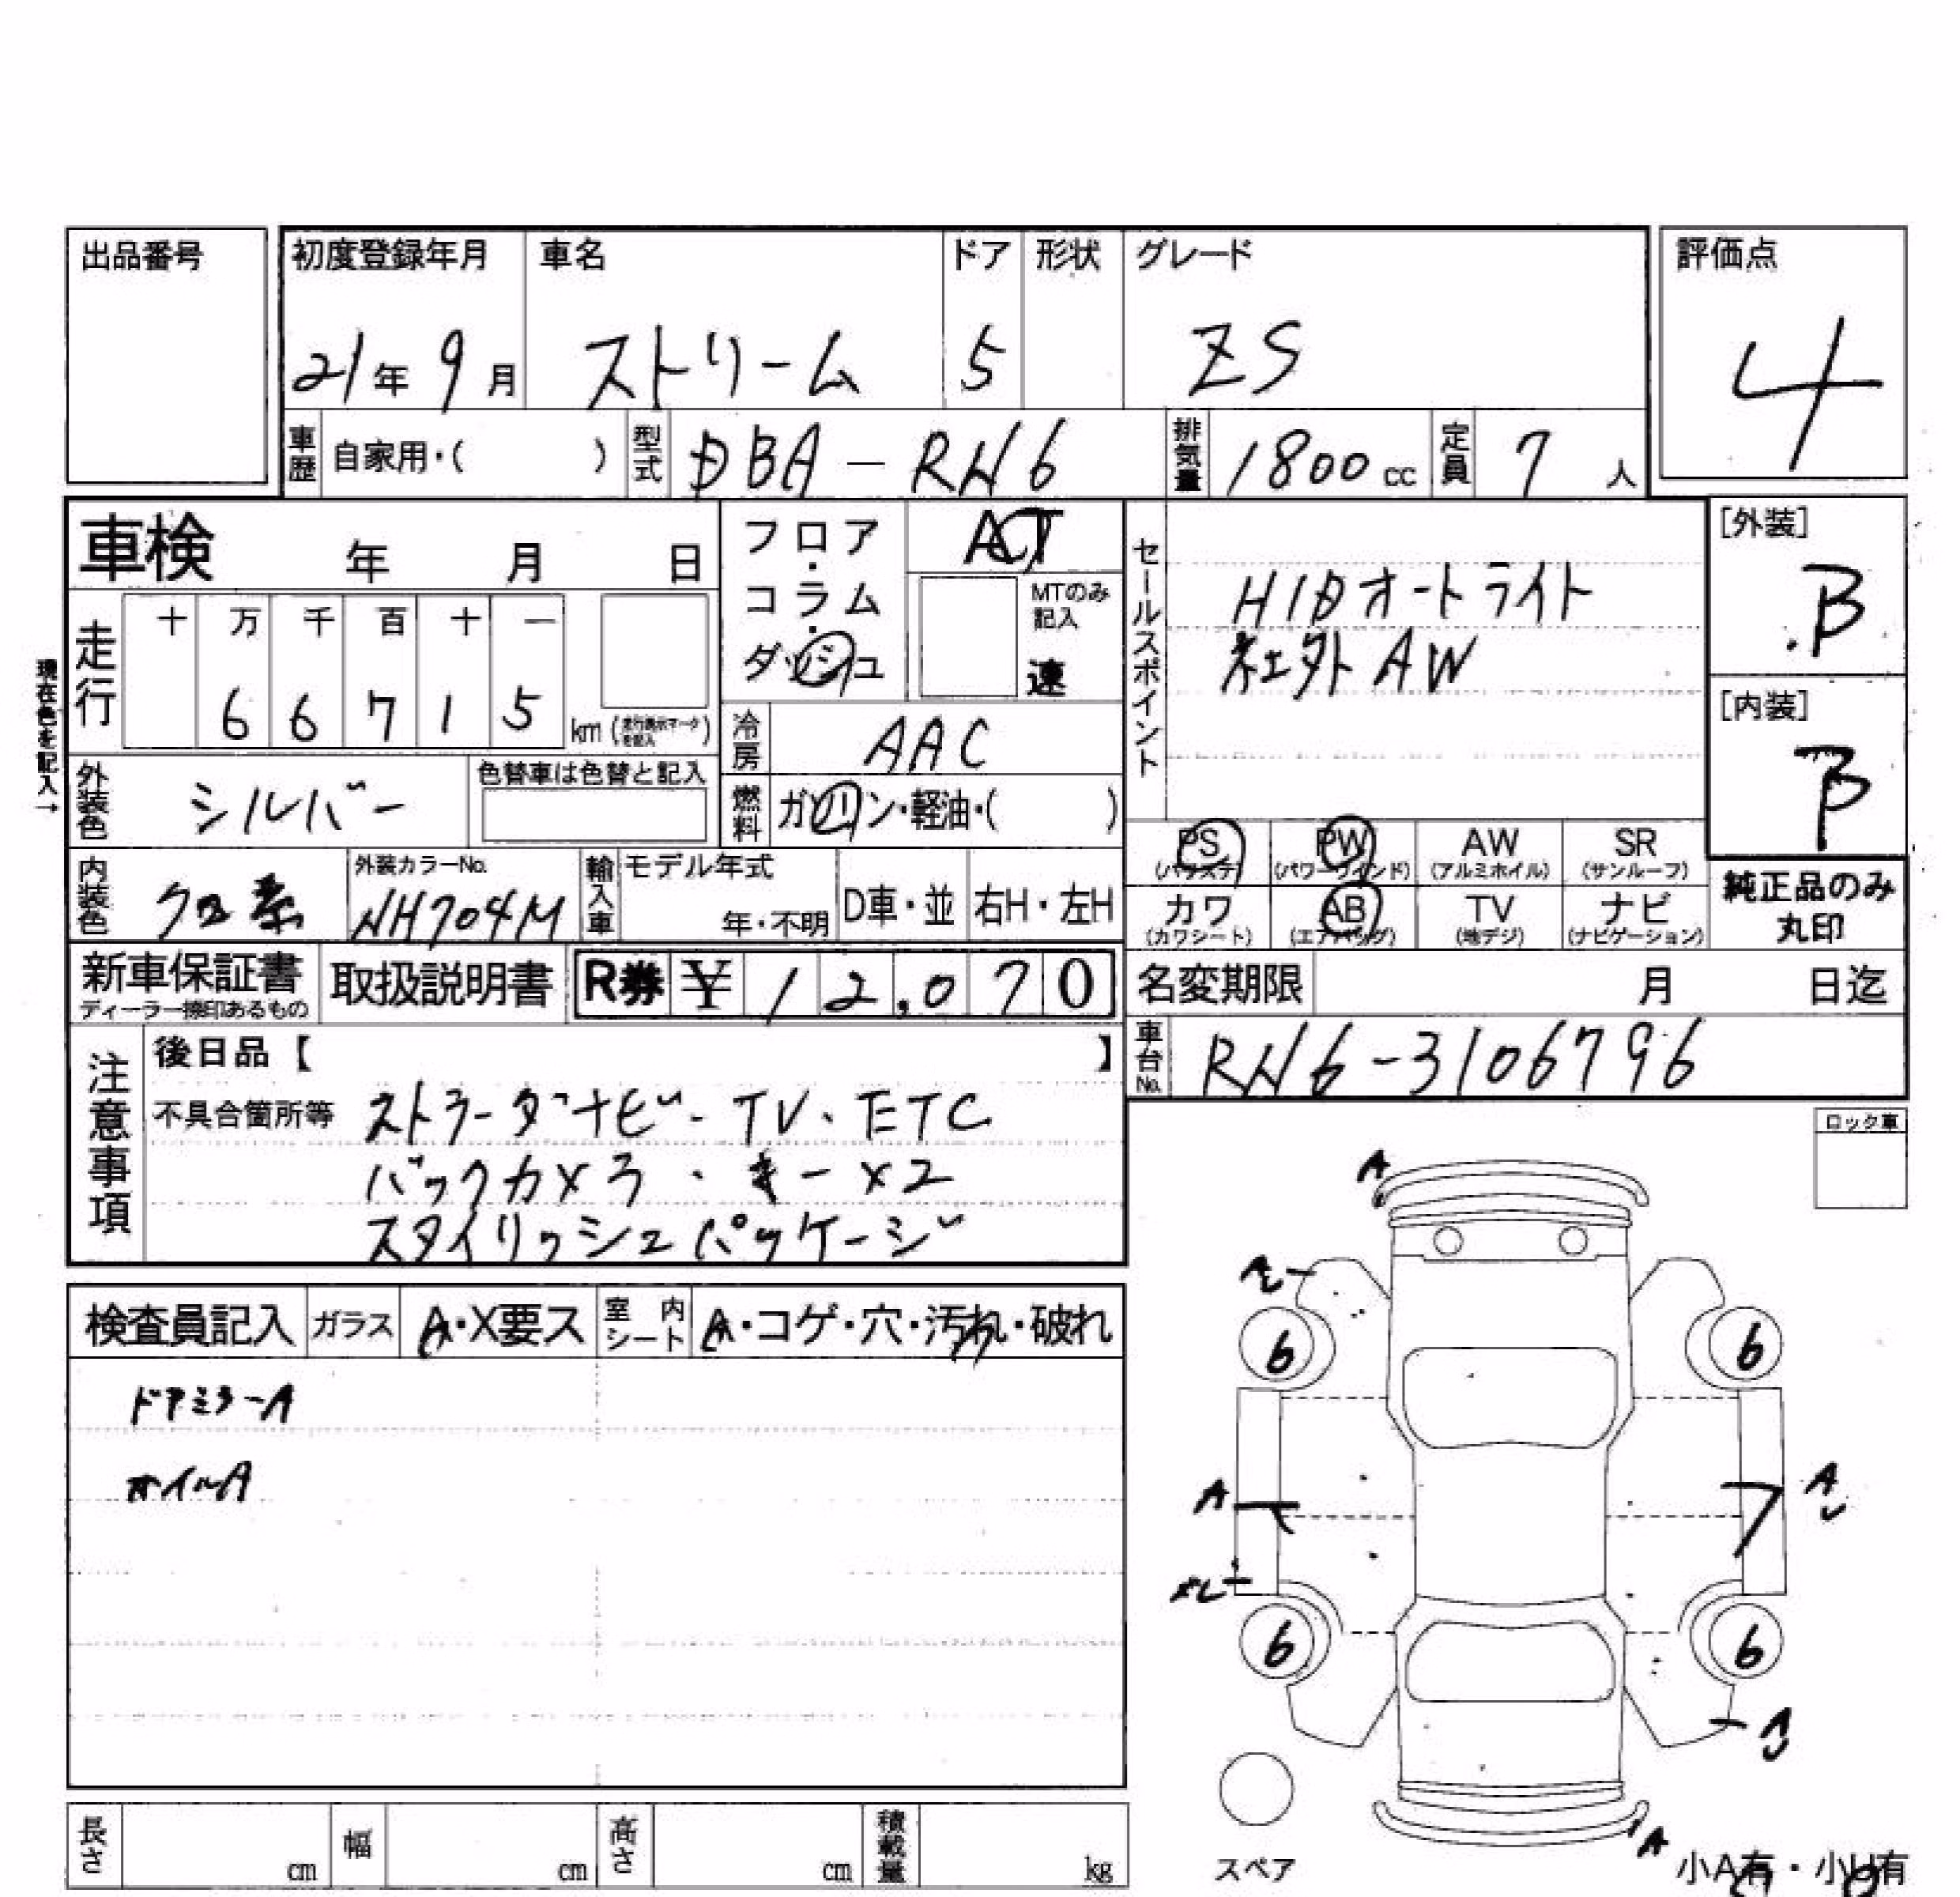 出品番号
初度登録年月 車名 ドア 形状 グレード 評価点
21年 9月 ストリーム 5 ZS 4
車歴 自家用・( ) 型式 DBA-RN6 排気量 1800cc 定員 7人
車検 年 月 日
フロア・コラム・ダッシュ AT
MTのみ記入 速
セールスポイント
HIDオートライト
社外AW
[外装] B
[内装] B
現在色を記入→
走行 十 万 千 百 十 一
6 6 7 1 5 km (走行表示マークを記入)
冷房 AAC
外装色 シルバー 色替車は色替と記入
燃料 ガソリン・軽油・( )
PS (パワステ) PW (パワーウィンド) AW (アルミホイル) SR (サンルーフ)
カワ (カワシート) AB (エアバッグ) TV (地デジ) ナビ (ナビゲーション)
純正品のみ丸印
内装色 クロ系 外装カラーNo. NH704M 輸入車 モデル年式 年・不明 D車・並 右H・左H
新車保証書 ディーラー捺印あるもの 取扱説明書 R券 ¥12,070
名変期限 月 日迄
車台No. RN6-3106796
注意事項
後日品【 】
不具合箇所等 ストラーダナビ・TV・ETC
バックカメラ・キー×2
スタイリッシュパッケージ
ロック車
検査員記入 ガラス A・X要ス 室内シート A・コゲ・穴・汚れ・破れ
ドアミラーA
オイルA
A
6 6
A A
6 6
A
スペア
小A有・小U有
長さ cm 幅 cm 高さ cm 積載量 kg